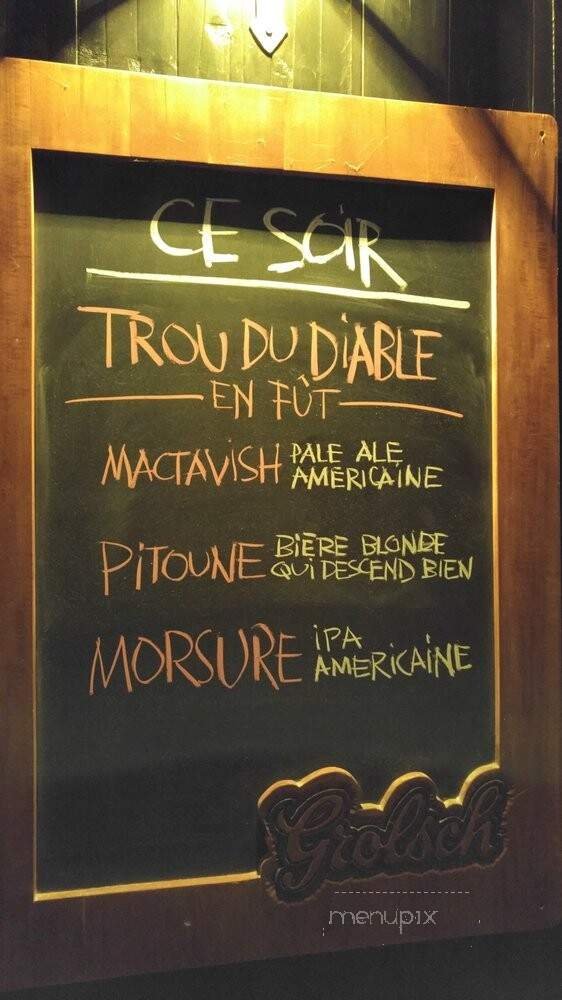 CE SOIR
TROU DU DIABLE
EN FÛT
MACTAVISH PALE ALE
AMÉRICAINE
PITOUNE BIÈRE BLONDE
QUI DESCEND BIEN
MORSURE IPA
AMERICAINE
Grolsch
menupix